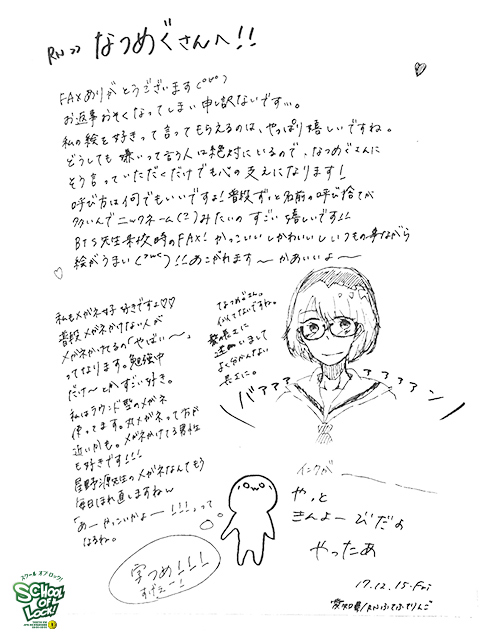 RN>> なつめぐさんへ!!
FAXありがとうございます(°°°)
お返事おそくなってしまい申し訳ないです…。
私の絵を好きって言ってもらえるのは、やっぱり嬉しいですね。
どうしても嫌いって言う人は絶対にいるので、なつめぐさんに
そう言っていただくだけでも心の支えになります!
呼び方は何でもいいですよ!普段ずっと名前の呼び捨てが
多いんでニックネーム(?)みたいの すごい嬉しいです!!
BTS先生来校時のFAX! かっこいいしかわいいし いつもの事ながら
絵がうまい!!あこがれます〜かあいいよ〜
私もメガネ女子好きですよ♡♡
普段メガネかけない人が
メガネかけてるの「やばい〜、
ってなります。勉強中
だけ〜とかすごい好き。
私はラウンド型のメガネ
使ってます。丸メガネって方が
近いかも。メガネかけてる男性
も好きです!!!
星野源先生のメガネなんてもう
毎日ほれ直しますねw
「あーやっこいかよー!!!」って
なるね。
なつめぐさん。
似てないですね。
髪の長さに
迷いまして
よく分かんない
長さに。
バァァァァ
ァァァァン
字つめ!!!
すげぇー!
インクが
やっと
きんよーびだよ
やったあ
17.12.15.Fri
愛知県/RNふでふでりんご
スクール オブ ロック!
SCHOOL OF LOCK!